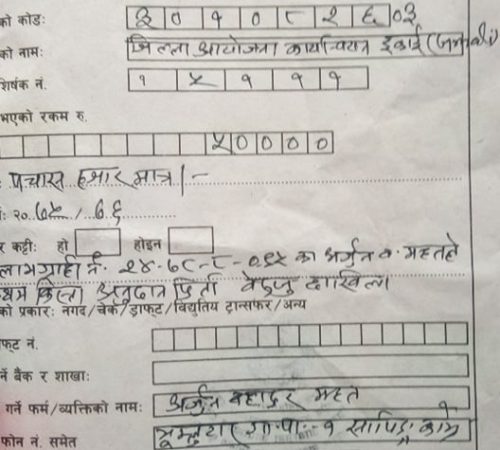 को कोड: ३०१०८२६०३
को नाम: जिल्ला आयोजना कार्यान्वयन इकाई
शिर्षक नं. १५१११
भएको रकम रु.
५००००
पचास हजार मात्र।-
२०७५/७.६
र कट्टी: हो होइन
लाभग्राही नं. २४-७८-८-०-१५ का अर्जुन व. महतले
किस्ता अनुदान दाखिला
को प्रकार: नगद/चेक/ड्राफ्ट/विद्युतिय ट्रान्सफर/अन्य
फ्ट नं.
ने बैंक र शाखा:
गर्ने फर्म/व्यक्तिको नाम: अर्जुन बहादुर महत
फोन नं. समेत भूम्लुटार गा.पा.-१